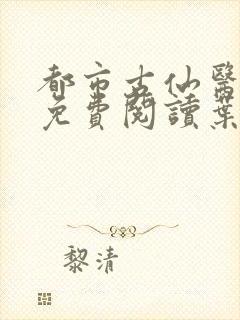 都市古仙醫
免費閱讀葉
黎清